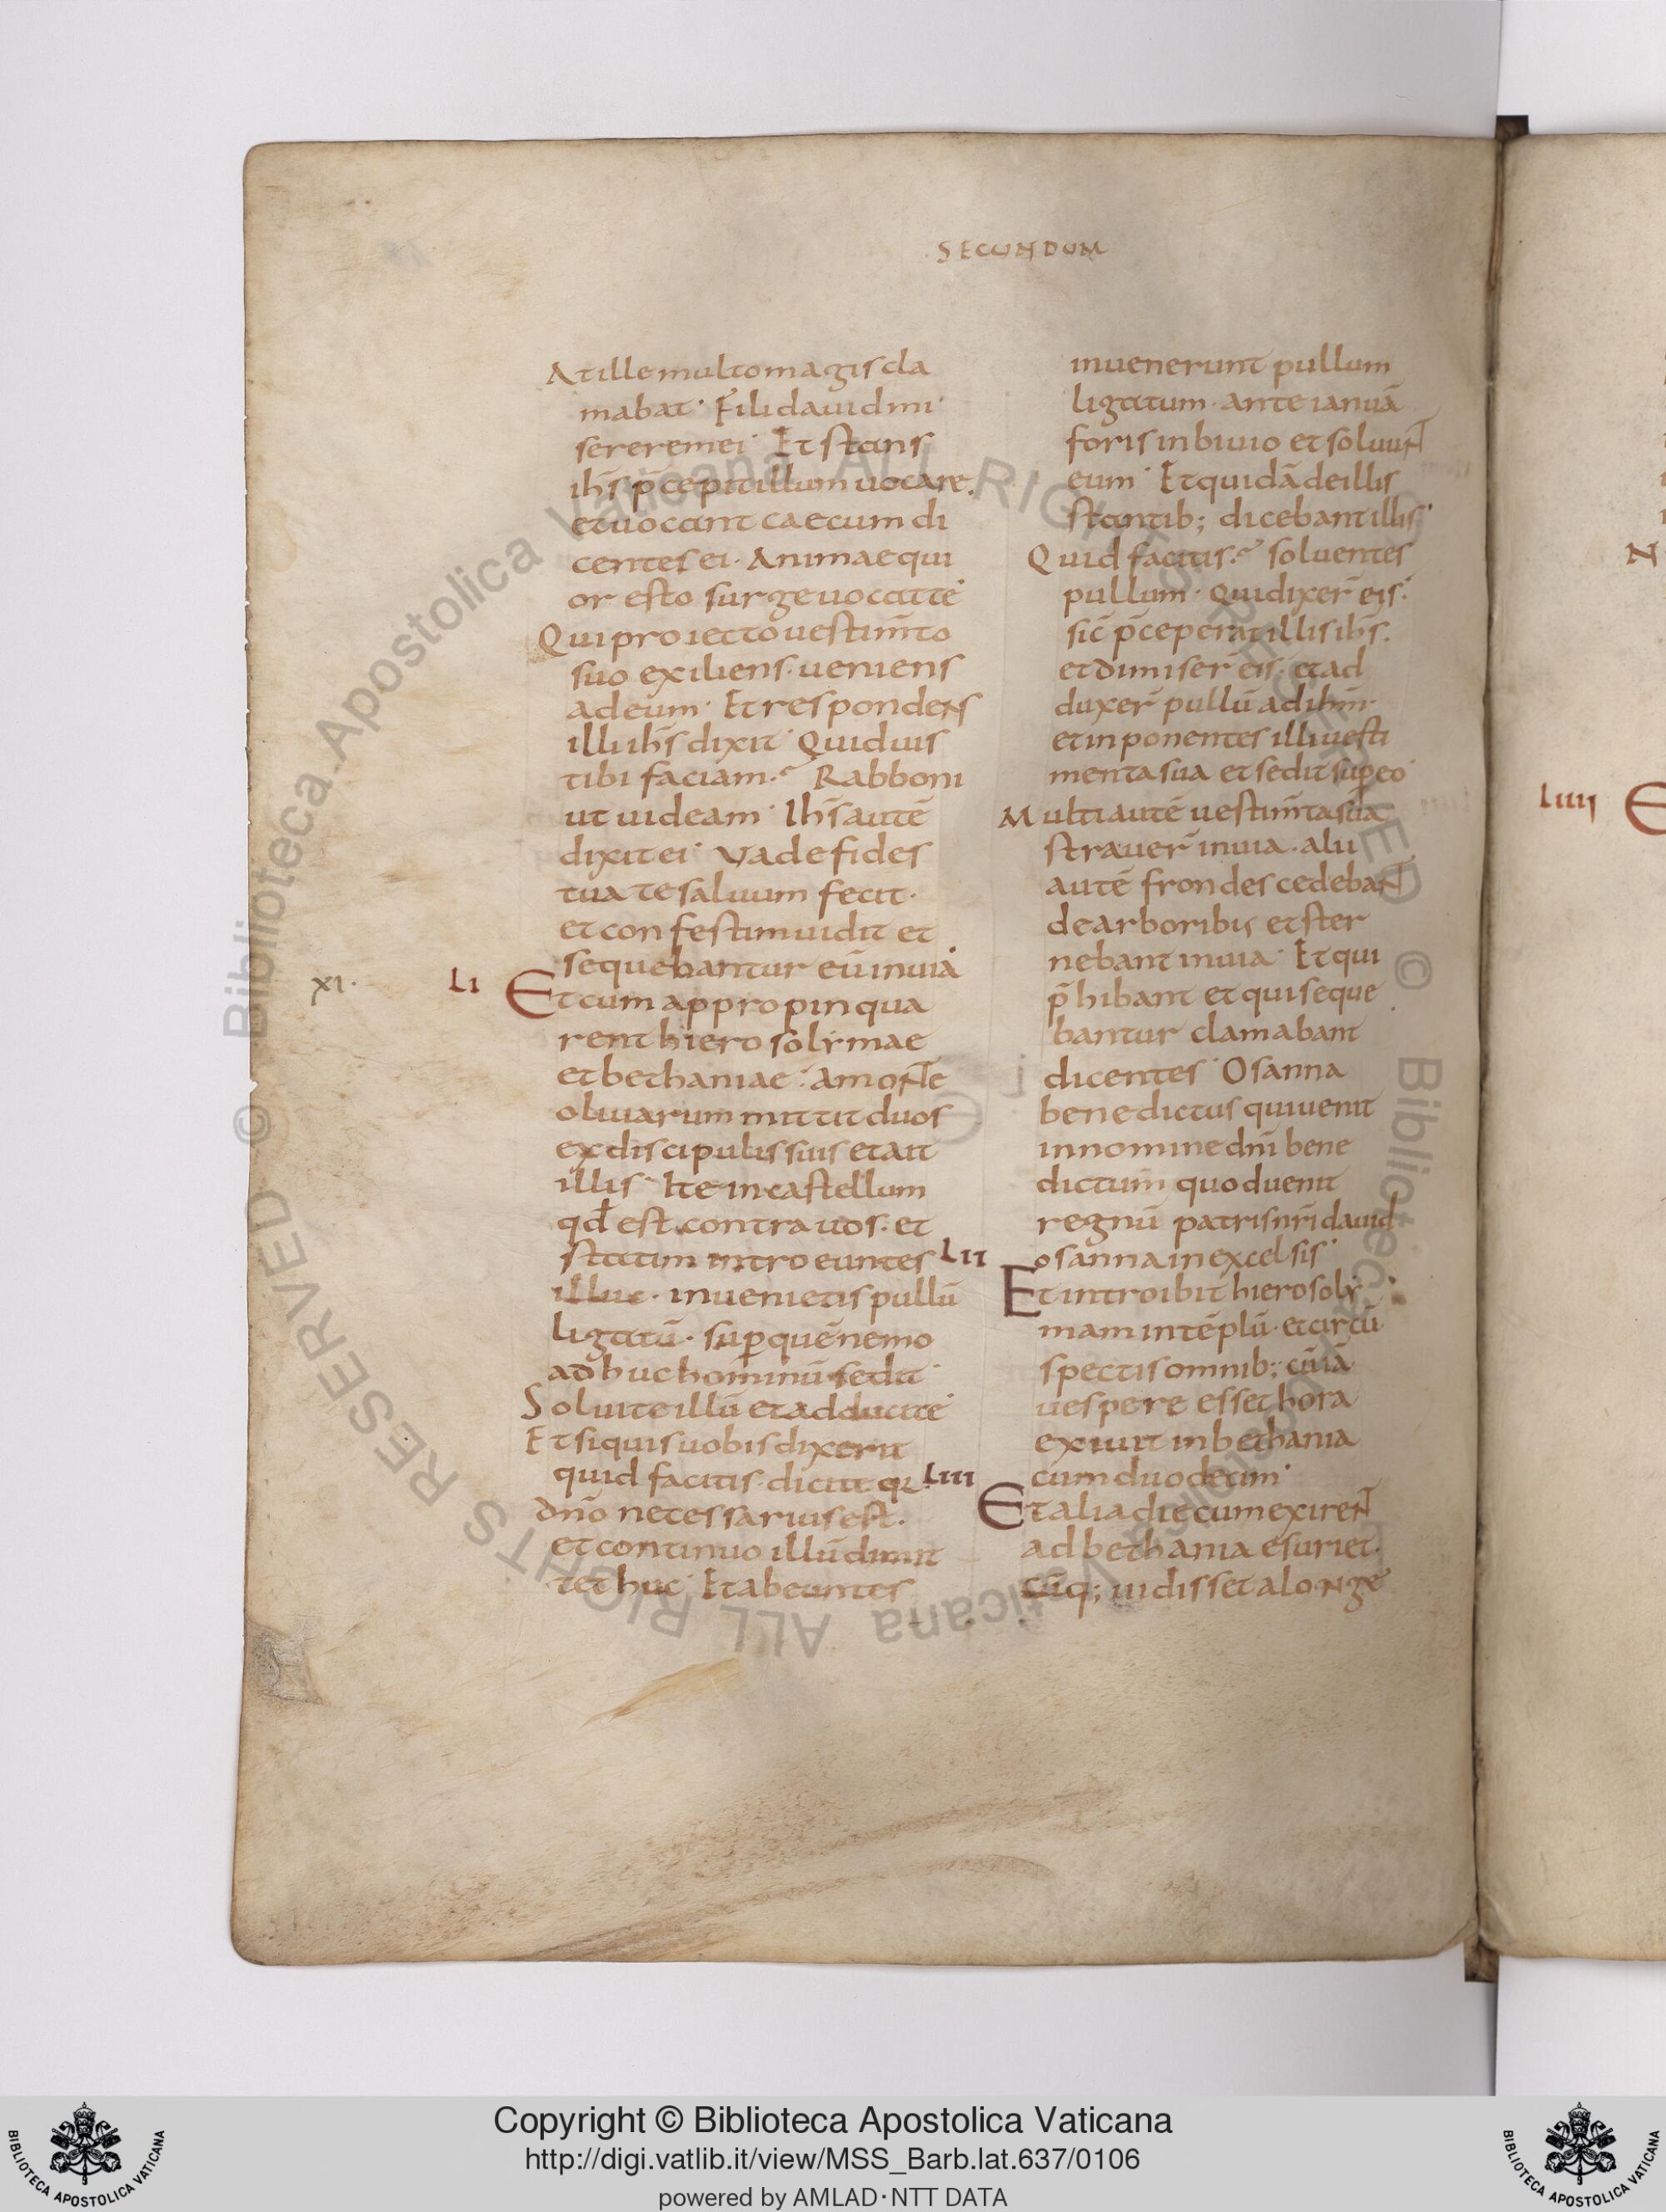 SECUNDUM
At ille multo magis cla
mabat· Fili dauid mi
serere mei· Et stans
ihs̄ p̄cepit illum uocare·
et uocant caecum di
centes ei· Animaequi
or esto surge uocat te·
Qui proiecto uestim̄to
suo exiliens· ueniens
ad eum· Et respondens
illi ihs̄ dixit· Quid uis
tibi faciam·? Rabboni
ut uideam· Ihs̄ autē
dixit ei· Vade fides
tua te saluum fecit·
et confestim uidit et
sequebantur eū in uia·
XI·
LI
Et cum appropinqua
rent hierosolymae
et bethaniae· a monte
oliuarum mittit duos
ex discipulis suis et ait
illis· Ite in castellum
qd̄ est contra uos· et
statim introeuntes
illuc· inuenietis pullū
ligatū· sup̱ quē nemo
adhuc hominū sedit·
Soluite illū et adducite·
Et si quis uobis dixerit
quid facitis· dicite q̱·
dn̄o necessarius est·
et continuo illū dimit
tet huc· Et abeuntes
inuenerunt pullum
ligatum· ante ianuā
foris in biuio et soluunt
eum· Et quidā de illis
stantib; dicebant illis·
Quid facitis·? soluentes
pullum· Qui dixer̄ eis·
sic̄ p̄ceperat illis ihs̄·
et dimiser̄ eis· et ad
duxer̄ pullū ad ihm̄·
et inponentes illi uesti
menta sua et sedit sup̱ eo·
Multi autē uestim̄ta sua
strauer̄ in uia· alii
autē frondes cedebant
de arboribus et ster
nebant in uia· Et qui
p̄hibant et qui seque
bantur clamabant
dicentes· Osanna
benedictus qui uenit
in nomine dn̄i bene
dictum quod uenit
regnū patris nr̄i dauid
osanna in excelsis·
LII
Et introibit hierosoly
mam in tēplū· et circū
spectis omnib; cū iā
uespere esset hora
exiuit in bethania
cum duodecim·
LIII
Et alia die cum exirent
ad bethania esuriet·
Cūq; uidisset a longe
LIIII
E
N
© Biblioteca Apostolica Vaticana ALL RIGHTS RESERVED © Biblioteca Apostolica Vaticana ALL RIGHTS RESERVED
Copyright © Biblioteca Apostolica Vaticana
http://digi.vatlib.it/view/MSS_Barb.lat.637/0106
powered by AMLAD·NTT DATA
BIBLIOTECA APOSTOLICA VATICANA
BIBLIOTECA APOSTOLICA VATICANA